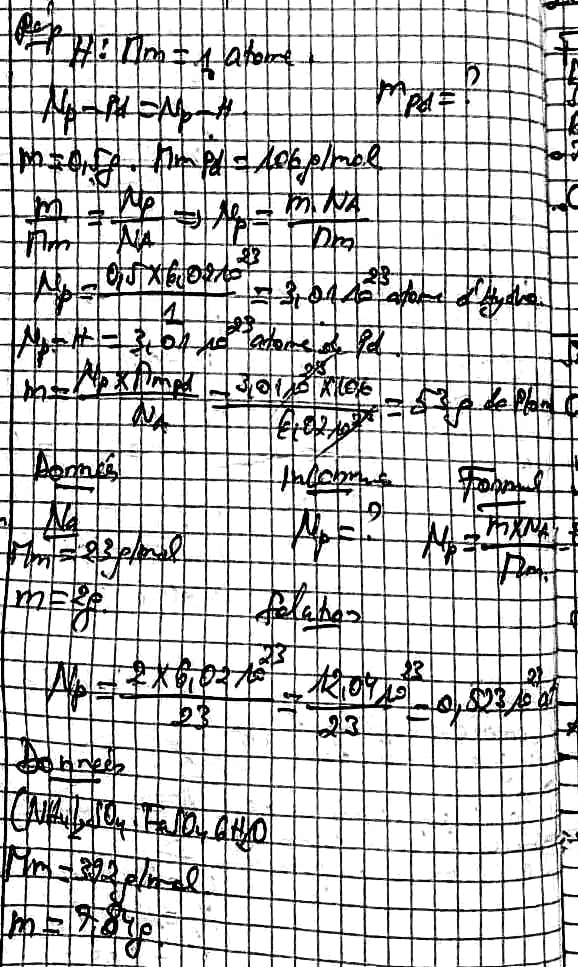 Rép
H: Mm = 1 atome.
Np-Pd = Np-H
m Pd = ?
m = 0,5g. Mm Pd = 106 g/mol
m/Mm = Np/NA ⇒ Np = m.NA/Mm
Np = 0,5 x 6,02 10^23 / 1 = 3,01 10^23 atome d'Hydro
Np-H = 3,01 10^23 atome de Pd.
m = Np x Mm Pd / NA = 3,01 10^23 x 106 / 6,02 10^23 = 53g de
Donnés Inconnue Formul
Na Np = ? Np = m x NA / Mm
Mm = 23 g/mol
m = 2g
Np = 2 x 6,02 10^23 / 23 = 12,04 10^23 / 23 = 0,523 10^23 at
Donnés
(NH4)2SO4. FeSO4 6H2O
Mm = 392 g/mol
m = 7.84g